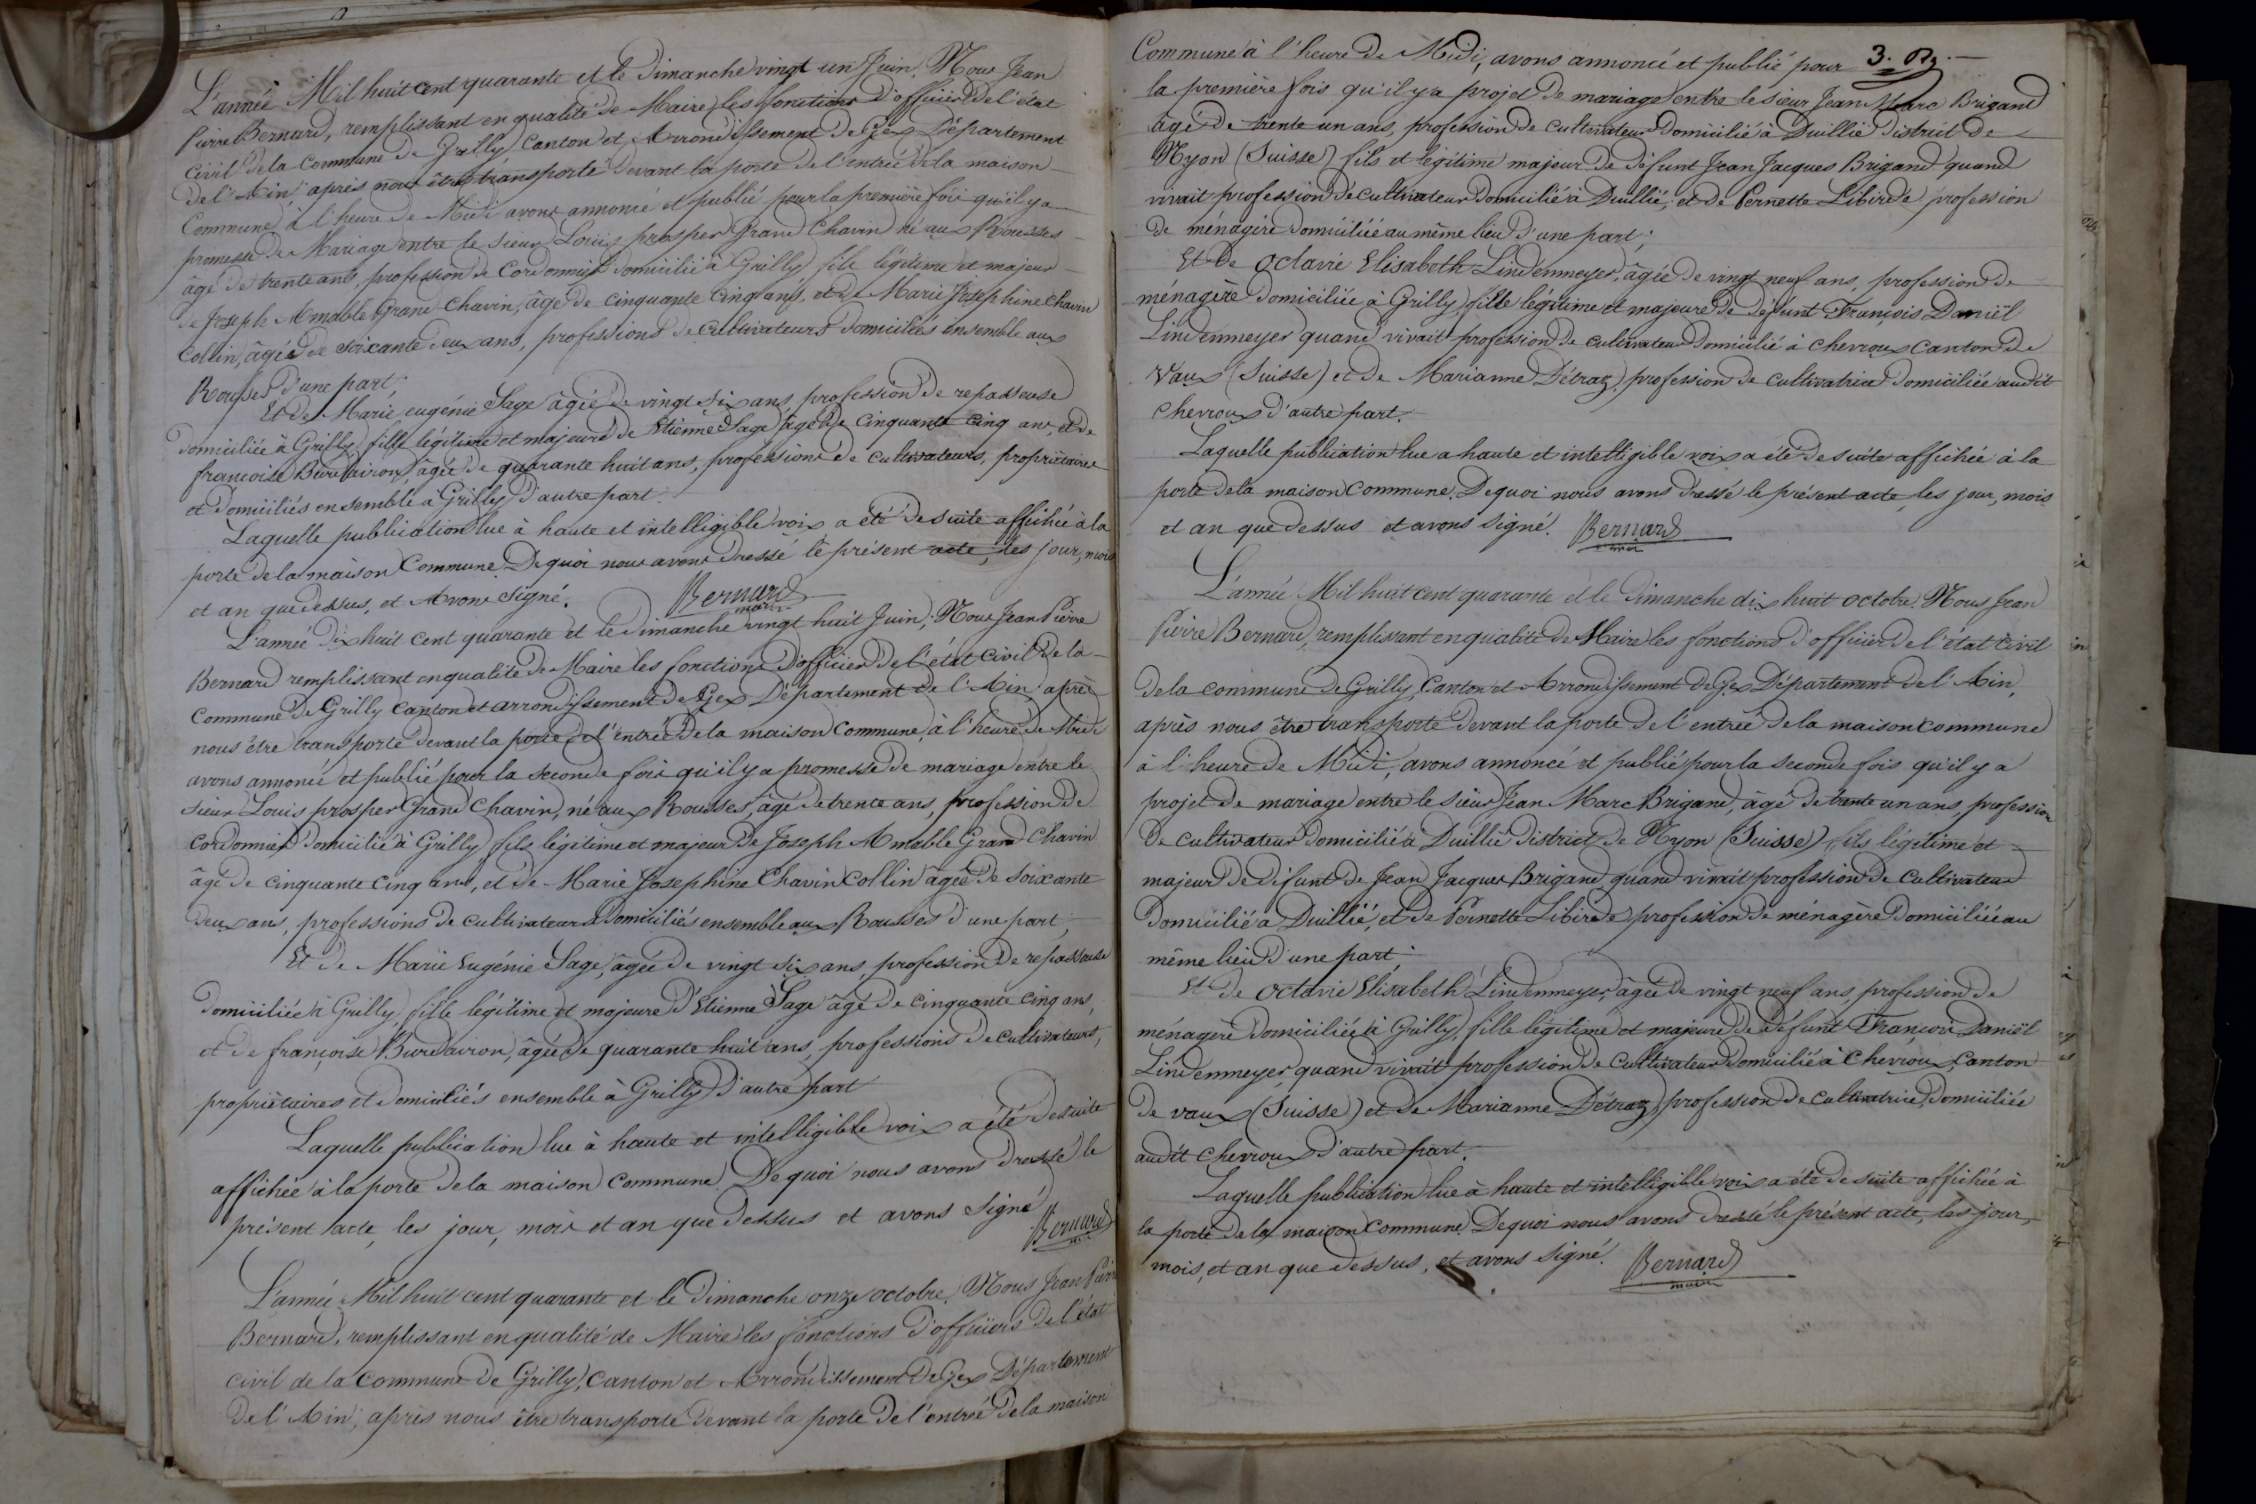 L'année Mil huit cent quarante et le Dimanche vingt un Juin. Nous Jean
Pierre Bernard, remplissant en qualité de Maire les fonctions d'officier de l'état
civil de la commune de Grilly Canton et Arrondissement de Gex Département
de l'Ain, après nous être transporté devant la porte de l'entrée de la maison
Commune à l'heure de Midi avons annoncé et publié pour la première fois qu'il y a
promesse de Mariage entre le sieur Louis prosper Grand Chavin né aux Rousses
âgé de trente ans, profession de Cordonnier domicilié à Grilly fils légitime et majeur
de Joseph Amable Grand Chavin, âgé de cinquante cinq ans, et de Marie Josephine Chavin
Collin, âgée de soixante deux ans, professions de cultivateurs domiciliés ensemble aux
Rousses d'une part;
Et de Marie eugénie Sage âgée de vingt six ans profession de repasseuse
domiciliée à Grilly, fille légitime et majeure de Etienne Sage âgé de cinquante cinq ans, et de
françoise Burdairon, âgée de quarante huit ans, professions de cultivateurs, propriétaires
et domiciliés ensemble à Grilly d'autre part.
Laquelle publication lue à haute et intelligible voix a été de suite affichée à la
porte de la maison Commune. De quoi nous avons dressé le présent acte, les jour, mois
et an que dessus, et Avons signé. Bernard
maire
L'année dix huit cent quarante et le dimanche vingt huit Juin; Nous Jean Pierre
Bernard remplissant en qualité de Maire les fonctions d'officier de l'état civil de la
Commune de Grilly Canton et arrondissement de Gex Département de l'Ain, après
nous être transporté devant la porte de l'entrée de la maison Commune, à l'heure de Midi
avons annoncé et publié pour la seconde fois qu'il y a promesse de mariage entre le
sieur Louis prosper Grand Chavin, né aux Rousses, âgé de trente ans, profession de
Cordonnier domicilié à Grilly fils légitime et majeur de Joseph Amable Grand Chavin
âgé de cinquante cinq ans, et de Marie Josephine Chavin Collin âgée de soixante
deux ans, professions de cultivateurs domiciliés ensemble aux Rousses d'une part,
Et de Marie Eugénie Sage, âgée de vingt six ans, profession de repasseuse
domiciliée à Grilly, fille légitime et majeure d'Etienne Sage âgé de cinquante cinq ans,
et de françoise Burdairon, âgée de quarante huit ans, professions de cultivateurs,
propriétaires et domiciliés ensemble à Grilly d'autre part
Laquelle publication lue à haute et intelligible voix a été de suite
affichée à la porte de la maison commune. De quoi nous avons dressé le
présent acte, les jour, mois et an que dessus et avons signé
Bernard
L'année Mil huit cent quarante et le Dimanche onze octobre. Nous Jean Pierre
Bernard, remplissant en qualité de Maire les fonctions d'officiers de l'état
civil de la Commune de Grilly, Canton et Arrondissement de Gex Département
de l'Ain; après nous être transporté devant la porte de l'entrée de la maison
3.
Commune à l'heure de Midi, avons annoncé et publié pour
la première fois qu'il y a projet de mariage entre le sieur Jean Marc Brigand
âgé de trente un ans, profession de cultivateur domicilié à Duillié district de
Nyon (Suisse) fils et légitime majeur de défunt Jean Jacques Brigand quand
vivait profession de cultivateur domicilié à Duillié, et de Pernette Libirde profession
de ménagère domiciliée au même lieu d'une part;
Et de Octavie Elisabeth Lindenmeyer, âgée de vingt neuf ans, profession de
ménagère domiciliée à Grilly fille légitime et majeure de défunt François Daniël
Lindenmeyer quand vivait profession de cultivateur domicilié à Chevroux Canton de
Vaux (Suisse) et de Marianne Détraz, profession de cultivatrice domiciliée audit
Chevroux d'autre part.
Laquelle publication lue a haute et intelligible voix a été de suite affichée à la
porte de la maison Commune. De quoi nous avons dressé le présent acte, les jour, mois
et an que dessus et avons signé. Bernard
maire
L'année Mil huit cent quarante et le Dimanche dix huit octobre. Nous Jean
Pierre Bernard, remplissant en qualité de Maire les fonctions d'officier de l'état civil
de la commune de Grilly, Canton et Arrondissement de Gex Département de l'Ain,
après nous être transporté devant la porte de l'entrée de la maison commune
à l'heure de Midi, avons annoncé et publié pour la seconde fois qu'il y a
projet de mariage entre le sieur Jean Marc Brigand, âgé de trente un ans, profession
de cultivateur domicilié à Duillié district de Nyon (Suisse) fils légitime et
majeur de défunt de Jean Jacques Brigand, quand vivait profession de cultivateur
domicilié à Duillié, et de Pernette Libirde profession de ménagère domiciliée au
même lieu d'une part;
Et de Octavie Elisabeth Lindenmeyer, âgée de vingt neuf ans, profession de
ménagère domiciliée à Grilly, fille légitime et majeure de défunt François Daniël
Lindenmeyer, quand vivait profession de cultivateur domicilié à Chevroux, Canton
de vaux (Suisse) et de Marianne Détraz, profession de cultivatrice, domiciliée
audit Chevroux d'autre part.
Laquelle publication lue à haute et intelligible voix a été de suite affichée à
la porte de la maison Commune. De quoi nous avons dressé le présent acte, les jour,
mois, et an que dessus, et avons signé. Bernard
maire